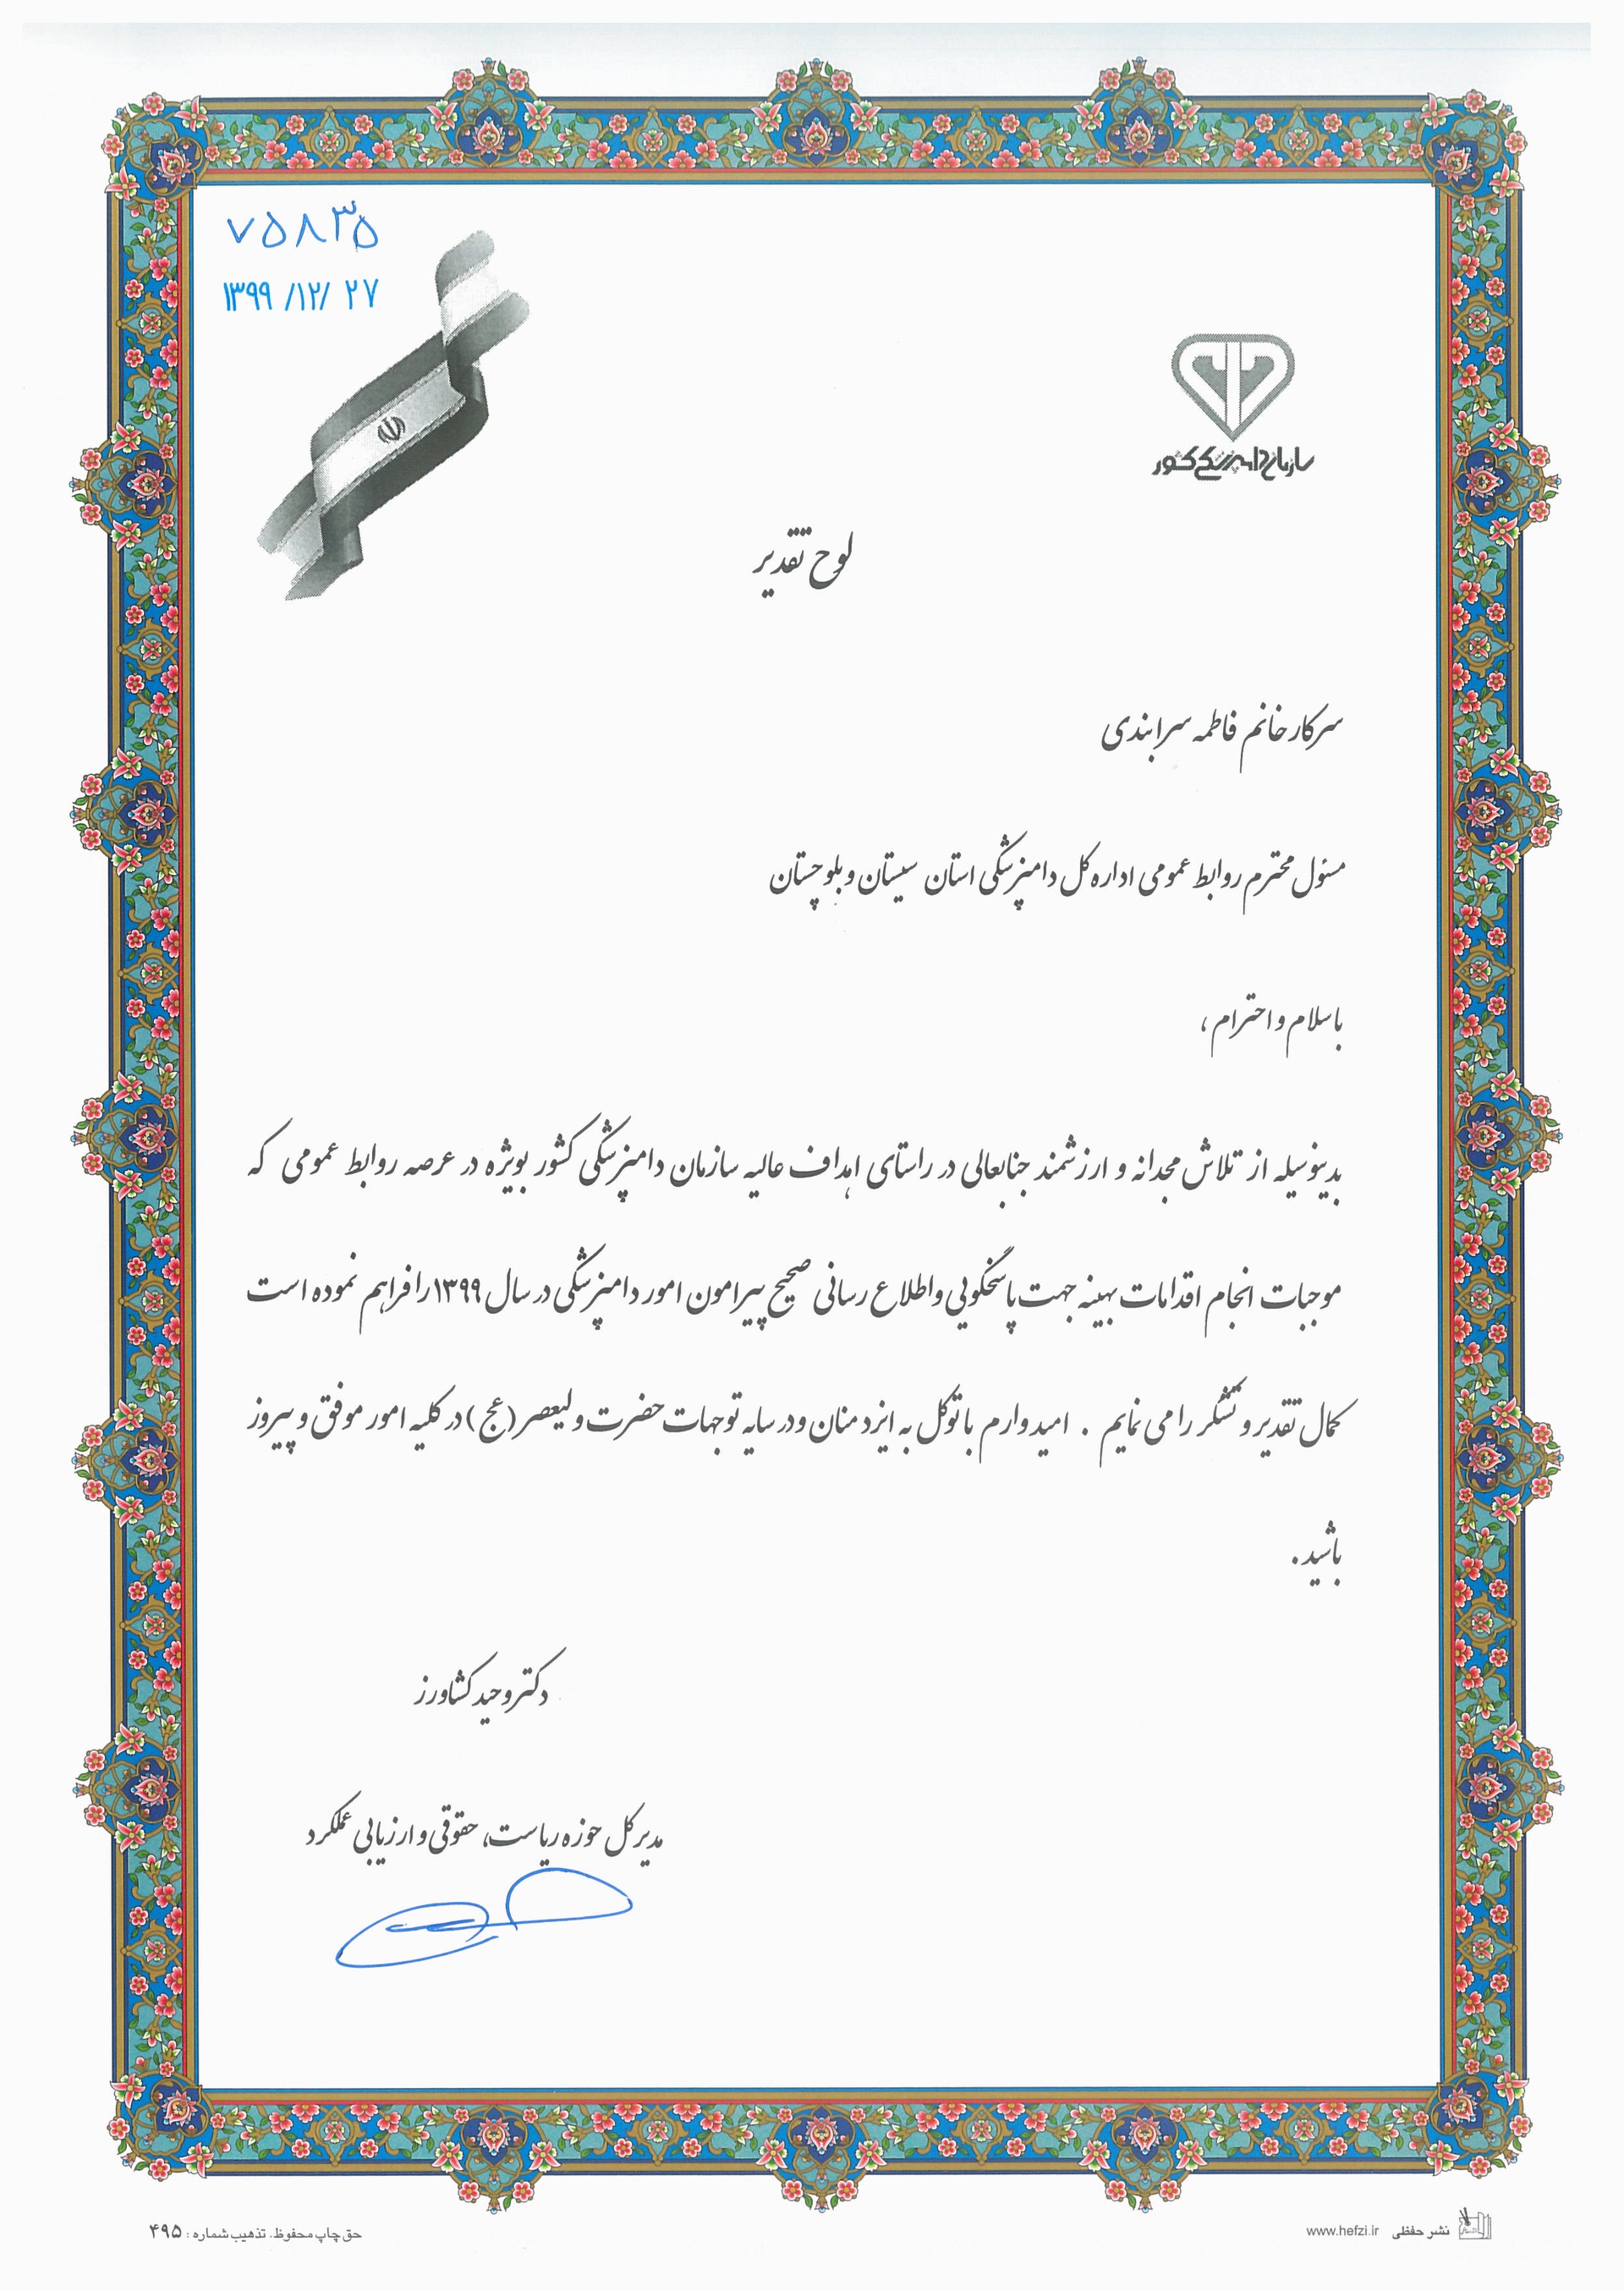 ۷۵۸۳۵
۱۳۹۹ /۱۲/ ۲۷
سازمان دامپزشکی کشور
لوح تقدیر
سرکار خانم فاطمه سرابندی
مسئول محترم روابط عمومی اداره کل دامپزشکی استان سیستان و بلوچستان
با سلام و احترام ،
بدینوسیله از تلاش مجدانه و ارزشمند جنابعالی در راستای اهداف عالیه سازمان دامپزشکی کشور بویژه در عرصه روابط عمومی که
موجبات انجام اقدامات بهینه جهت پاسخگویی و اطلاع رسانی صحیح پیرامون امور دامپزشکی در سال ۱۳۹۹ را فراهم نموده است
کمال تقدیر و تشکر را می نمایم . امیدوارم با توکل به ایزد منان و در سایه توجهات حضرت ولیعصر (عج) در کلیه امور موفق و پیروز
باشید.
دکتر وحید کشاورز
مدیر کل حوزه ریاست، حقوقی و ارزیابی عملکرد
نشر حفظی www.hefzi.ir
حق چاپ محفوظ. تذهیب شماره : ۴۹۵